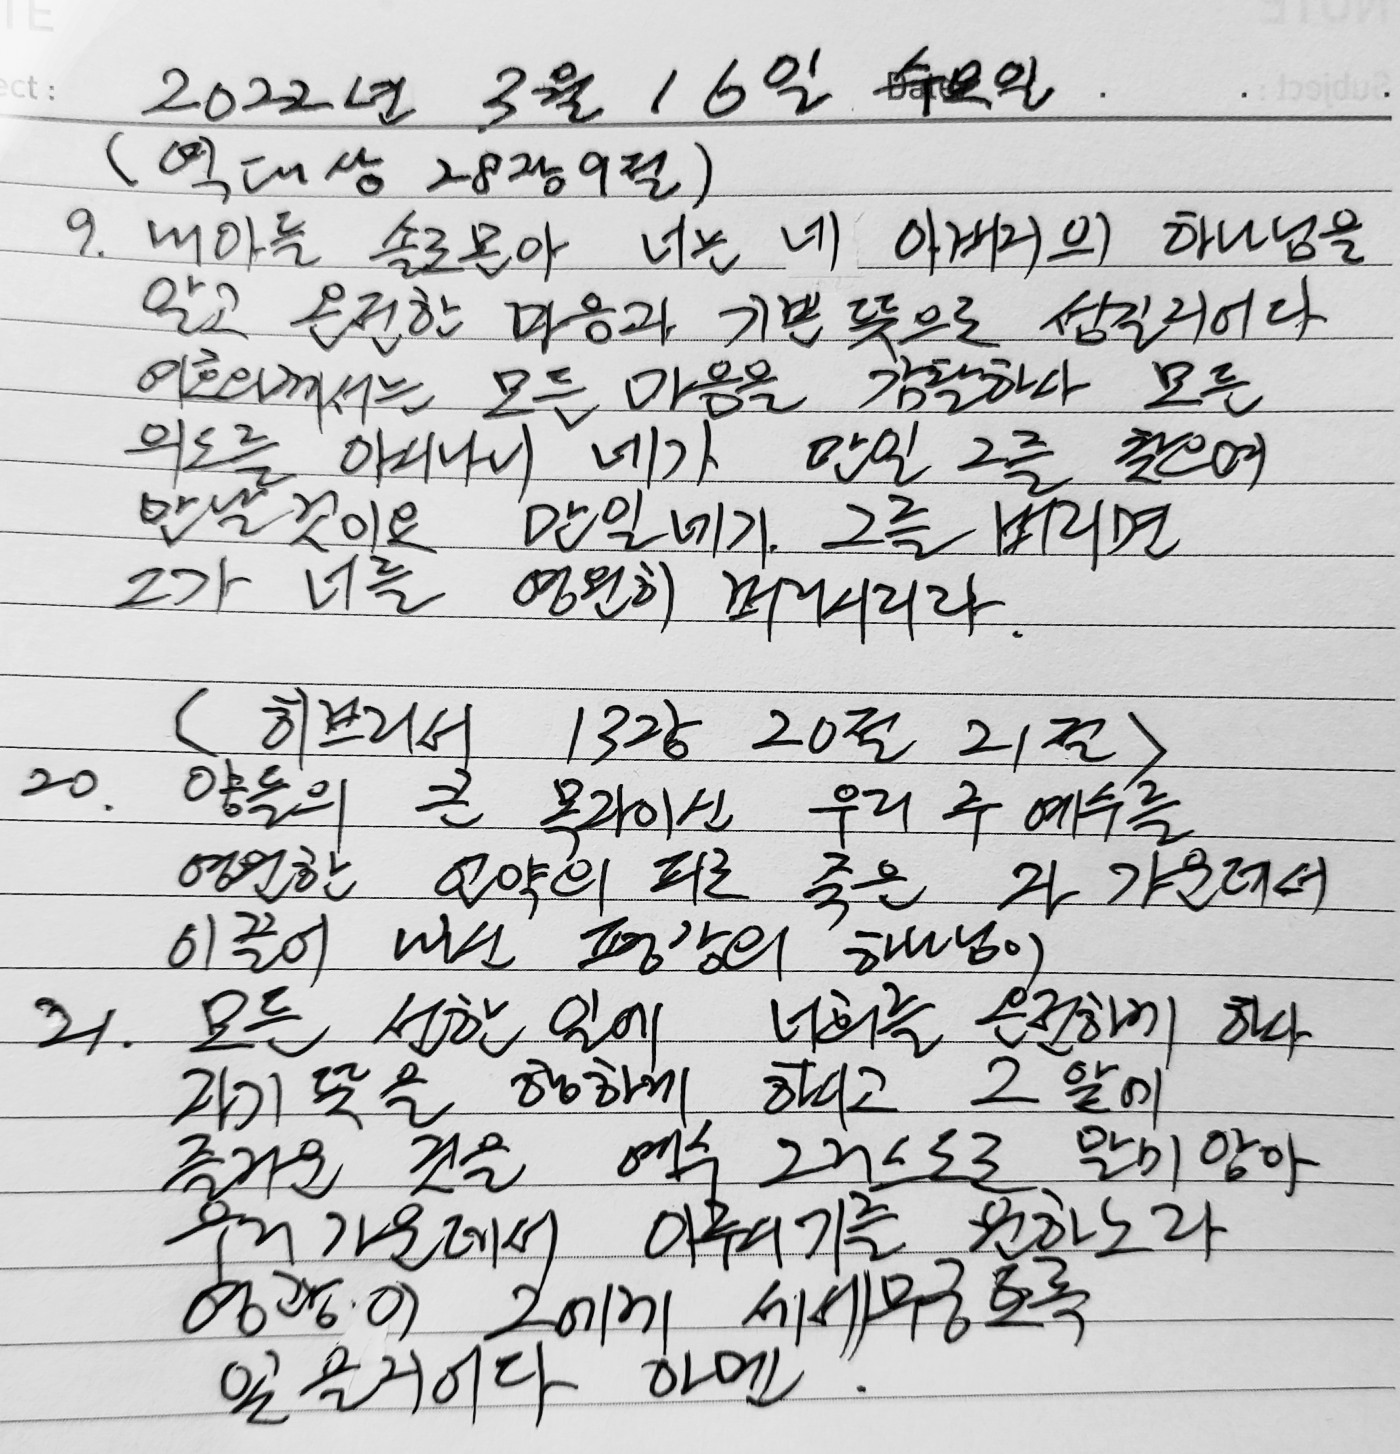 2022년 3월 16일 수요일
(역대상 28장9절)
9. 내아들 솔로몬아 너는 네 아버지의 하나님을
알고 온전한 마음과 기쁜 뜻으로 섬길지어다
여호와께서는 모든 마음을 감찰하사 모든
의도를 아시나니 네가 만일 그를 찾으며
만날것이요 만일네가 그를 버리면
그가 너를 영원히 버리시리라.
<히브리서 13장 20절 21절>
20. 양들의 큰 목자이신 우리 주 예수를
영원한 언약의 피로 죽은 자 가운데서
이끌어 내신 평강의 하나님이
21. 모든 선한 일에 너희를 온전하게 하사
자기 뜻을 행하게 하시고 그 앞에
즐거운 것을 예수 그리스도로 말미암아
우리 가운데서 이루시기를 원하노라
영광이 그에게 세세무궁토록
있을지어다 아멘.